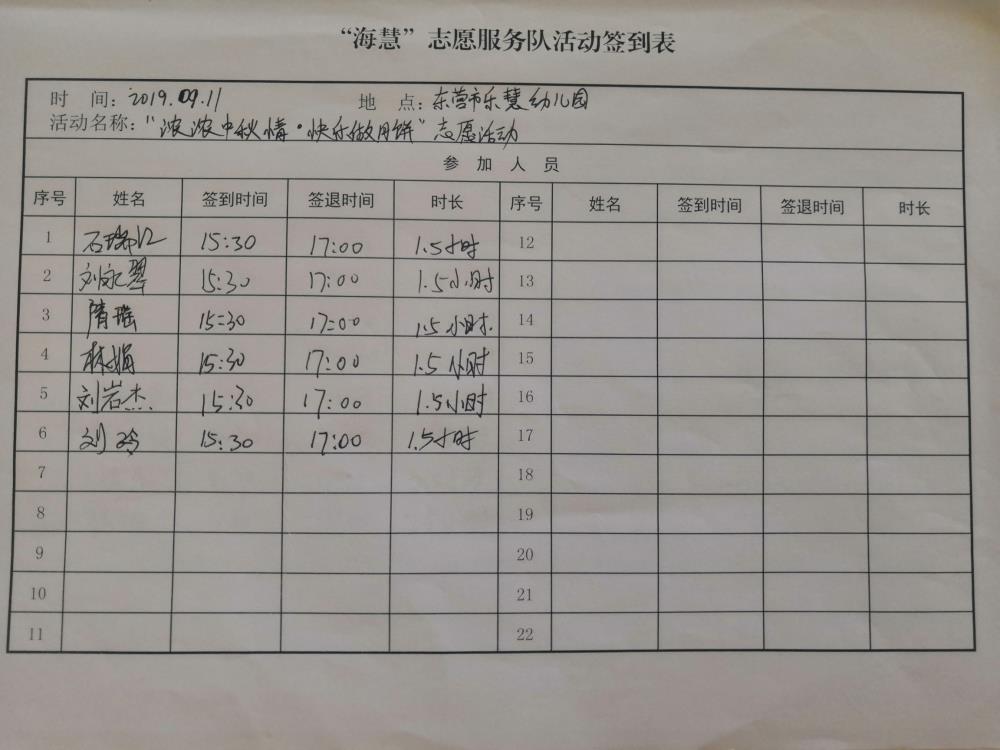 “海慧”志愿服务队活动签到表
时 间：2019.09.11 地 点：东营市乐慧幼儿园
活动名称：“浓浓中秋情·快乐做月饼”志愿活动
参 加 人 员
序号 姓名 签到时间 签退时间 时长 序号 姓名 签到时间 签退时间 时长
1 15:30 17:00 1.5小时 12
2 刘永翠 15:30 17:00 1.5小时 13
3 隋瑶 15:30 17:00 1.5小时. 14
4 林娟 15:30 17:00 1.5小时 15
5 刘岩杰 15:30 17:00 1.5小时 16
6 刘玲 15:30 17:00 1.5小时 17
7 18
8 19
9 20
10 21
11 22